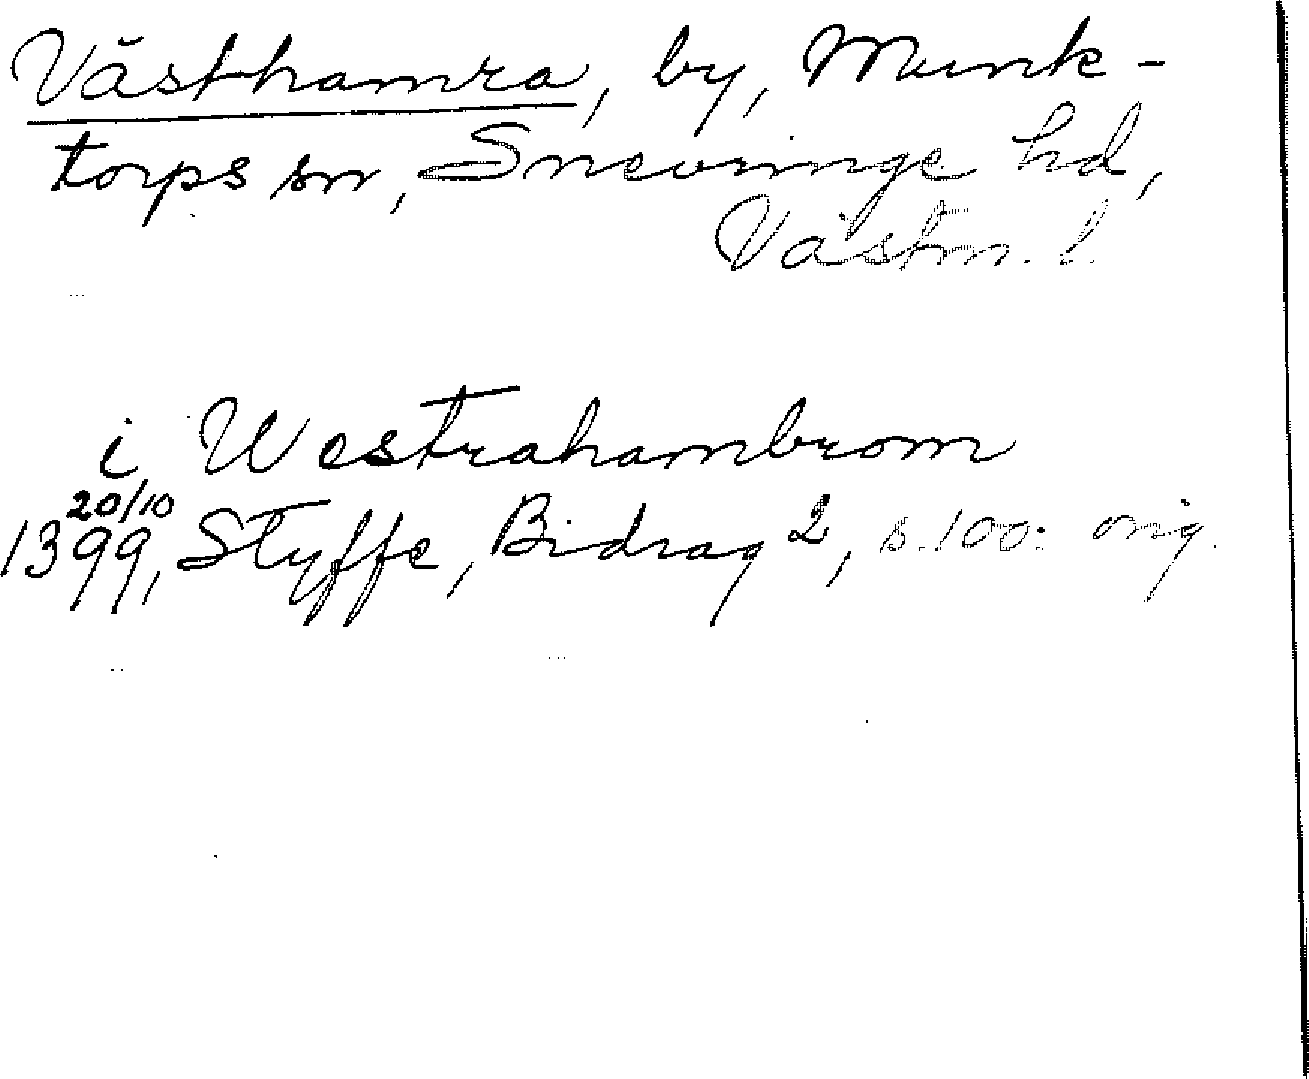 Västhamra, by, Munk-
torps sn, Snevringe hd,
Västm. l.
i Westrahambrom
20/10
1399, Styffe, Bidrag 2, s. 100: orig.